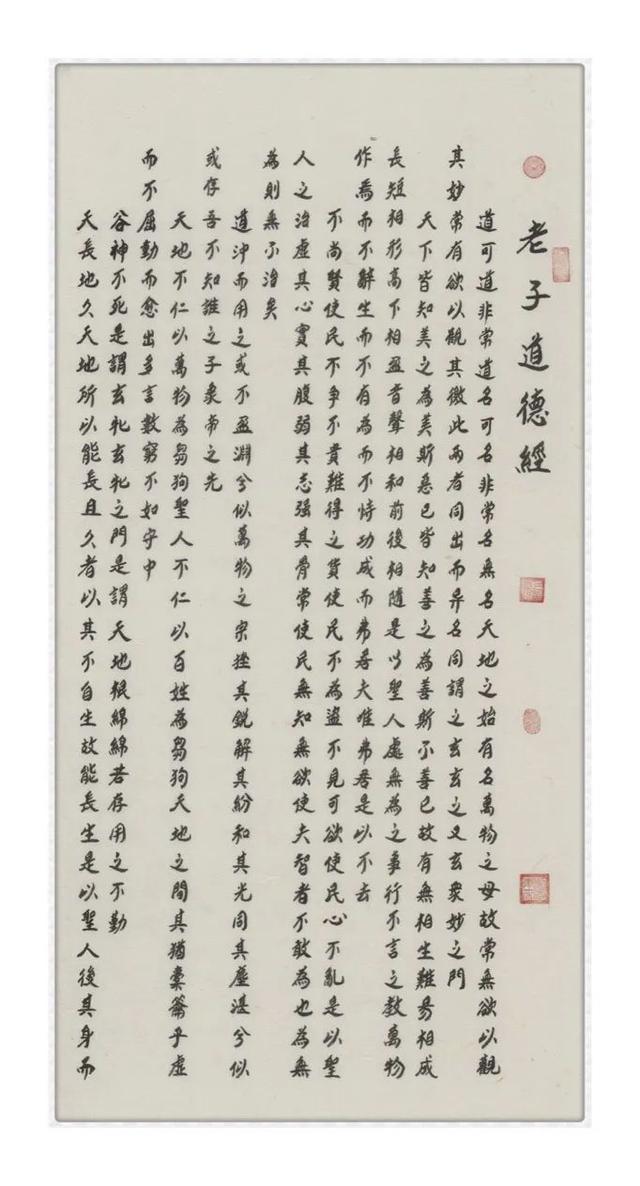 老子道德經
道可道非常道名可名非常名無名天地之始有名萬物之母故常無欲以觀
其妙常有欲以觀其徼此兩者同出而異名同謂之玄玄之又玄衆妙之門
天下皆知美之為美斯惡已皆知善之為善斯不善已故有無相生難易相成
長短相形高下相盈音聲相和前後相隨是以聖人處無為之事行不言之教萬物
作焉而不辭生而不有為而不恃功成而弗居夫唯弗居是以不去
不尚賢使民不爭不貴難得之貨使民不為盜不見可欲使民心不亂是以聖
人之治虛其心實其腹弱其志强其骨常使民無知無欲使夫智者不敢為也為無
為則無不治矣
道沖而用之或不盈淵兮似萬物之宗挫其銳解其紛和其光同其塵湛兮似
或存吾不知誰之子象帝之先
天地不仁以萬物為芻狗聖人不仁以百姓為芻狗天地之間其猶橐籥乎虛
而不屈動而愈出多言數窮不如守中
谷神不死是謂玄牝玄牝之門是謂天地根綿綿若存用之不勤
天長地久天地所以能長且久者以其不自生故能長生是以聖人後其身而